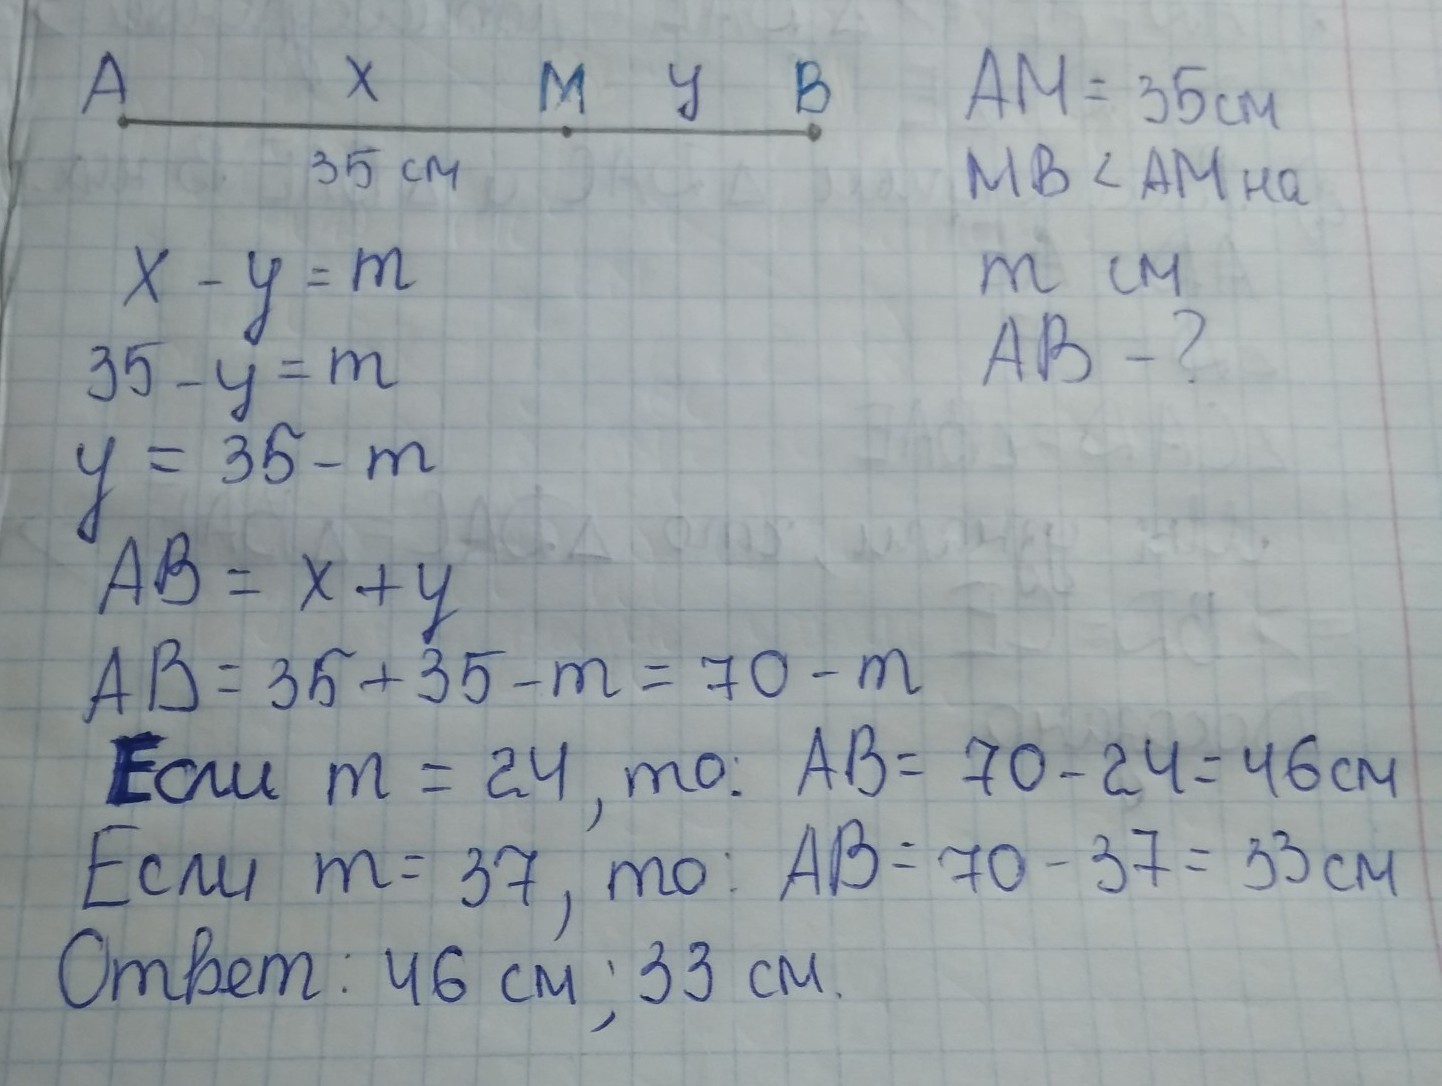 A x M y B
35 см
AM = 35 см
MB < AM на
m см
AB - ?
x - y = m
35 - y = m
y = 35 - m
AB = x + y
AB = 35 + 35 - m = 70 - m
Если m = 24, то: AB = 70 - 24 = 46 см
Если m = 37, то: AB = 70 - 37 = 33 см
Ответ: 46 см; 33 см.